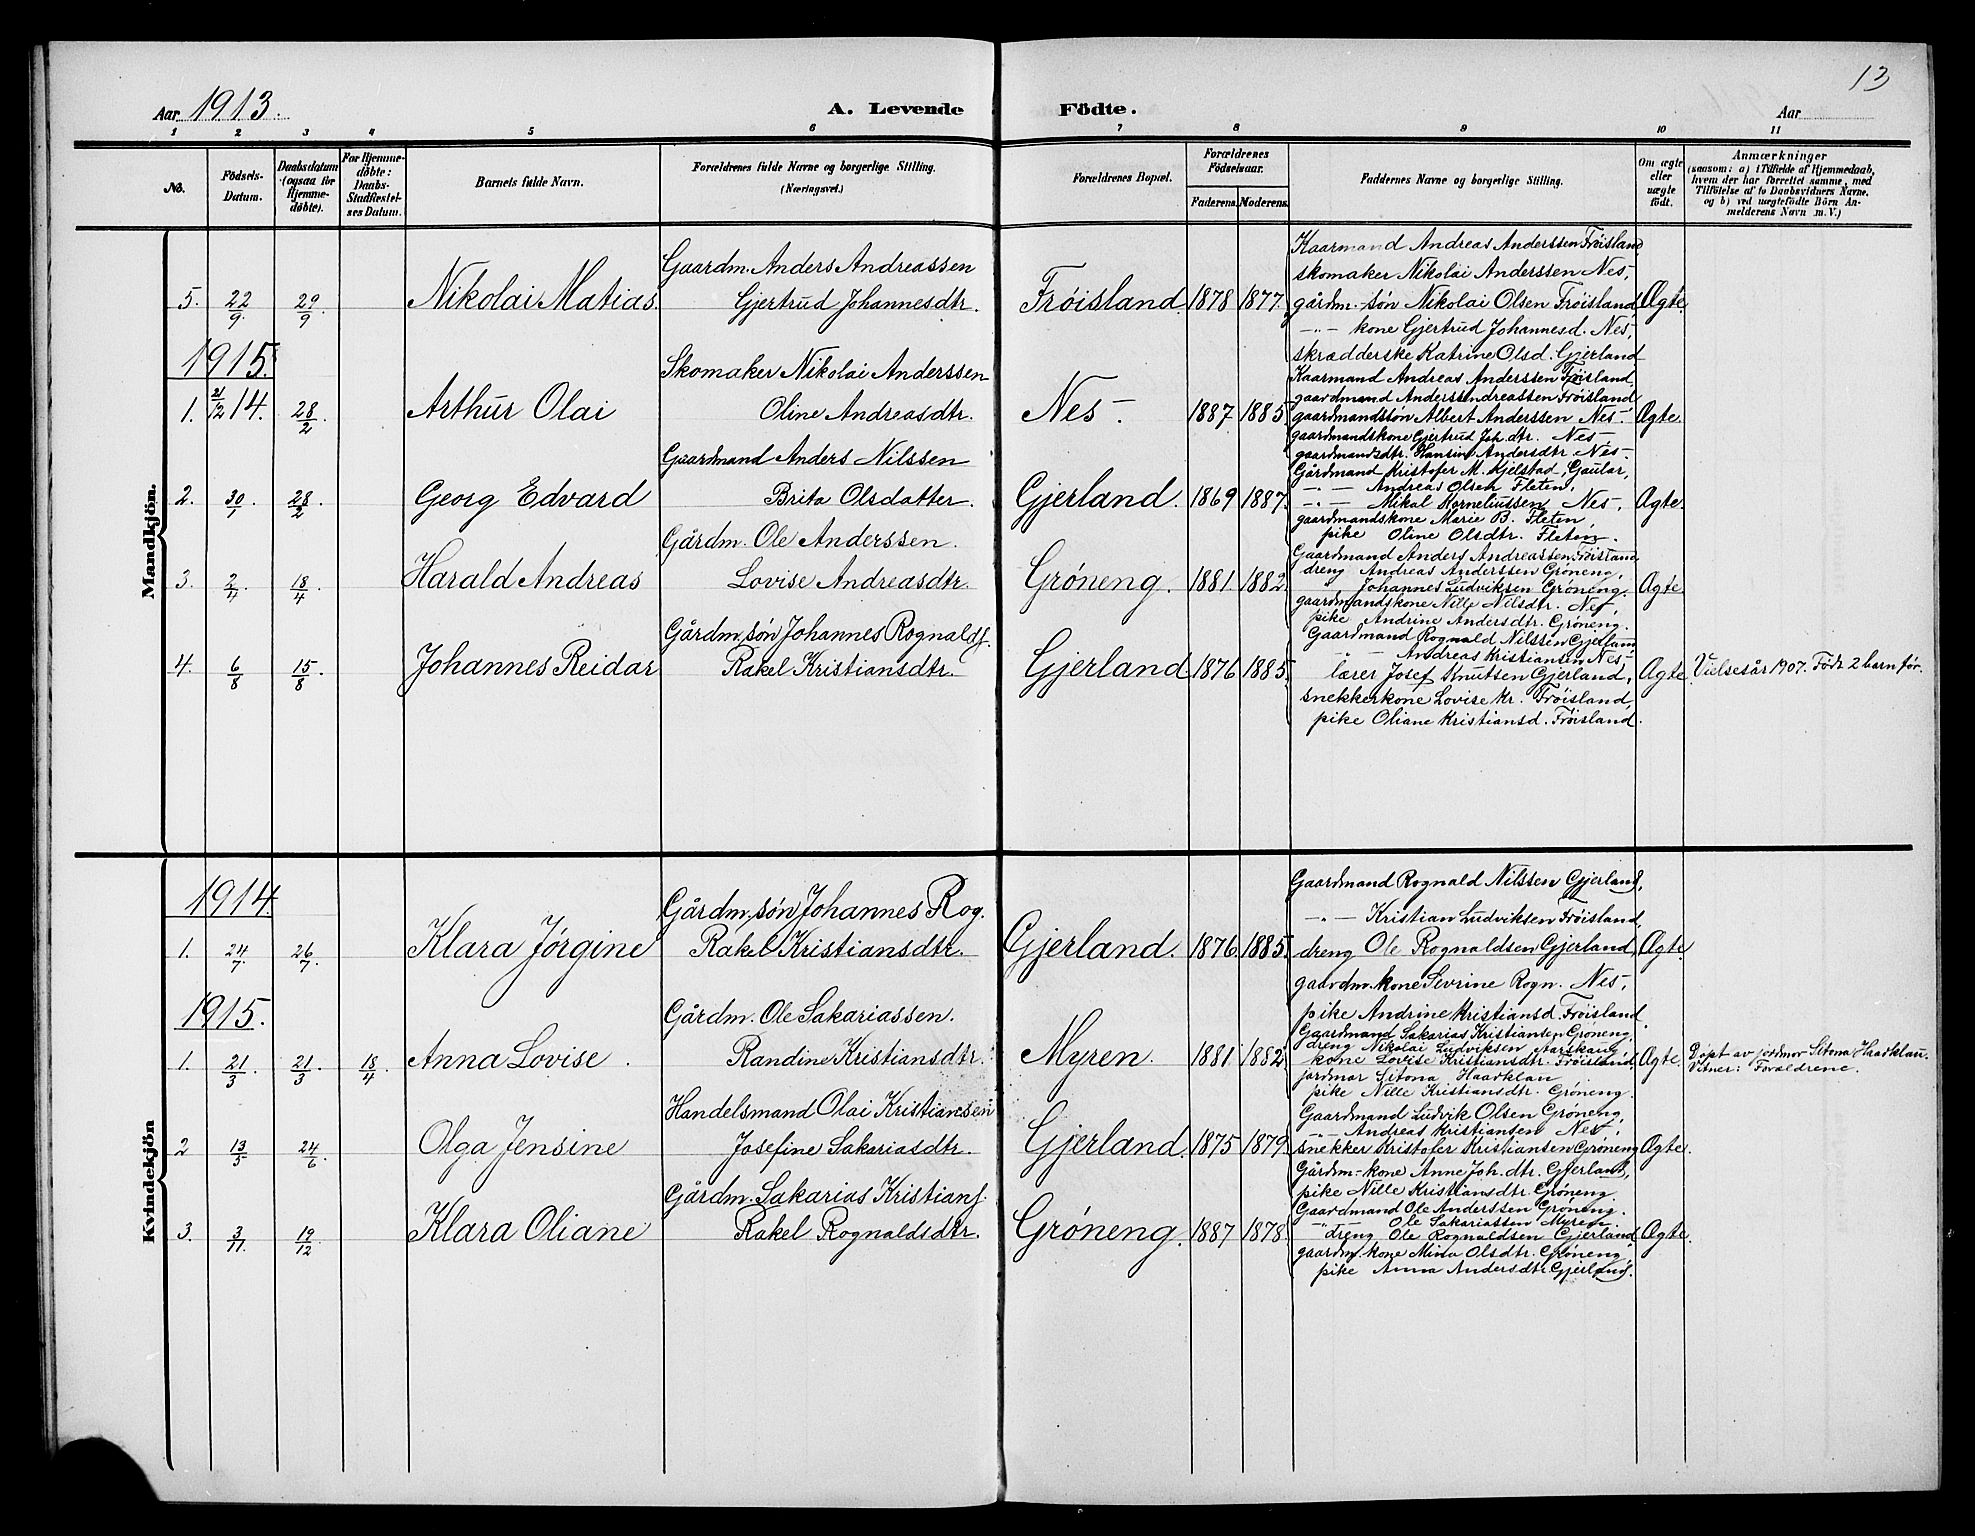 13
Aar 1913.
A. Levende Födte.
Aar
1 2 3 4 5 6 7 8 9 10 11
No.
Födsels-Datum.
Daabsdatum (ogsaa for Hjemme-döbte).
For Hjemme-döbte: Daabs-Stadfæstelses Datum.
Barnets fulde Navn.
Forældrenes fulde Navne og borgerlige Stilling. (Næringsvei.)
Forældrenes Bopæl.
Forældrenes Födselsaar.
Faderens. Moderens.
Faddernes Navne og borgerlige Stilling.
Om ægte eller uægte födt.
Anmærkninger
(saasom: a) i Tilfælde af Hjemmedaab, hvem der har forrettet samme, med Tilföielse af to Daabsvidners Navne, og b) ved uægtefödte Börn Anmelderens Navn m. V.)
Mandkjön.
5. 22/9. 29/9. Nikolai Matias.
Gaardm. Anders Andreassen
Gjertrud Johannesdtr.
Frøisland 1878 1877.
Kaarmand Andreas Anderssen Frøisland,
skomaker Nikolai Anderssen Nes,
gårdm.-søn Nikolai Olsen Frøisland
-"- kone Gjertrud Johannesd. Nes,
skrædderske Katrine Olsd. Gjerland
Ægte.
1915.
1. 21/12 14. 28/2 Arthur Olai
Skomaker Nikolai Anderssen
Oline Andreasdtr.
Nes. 1887 1885
Kaarmand Andreas Anderssen Frøisland,
gaardmand Anders Andreassen Frøisland
gaardmandssøn Albert Anderssen Nes
gaardmandskone Gjertrud Joh.dtr. Nes
gaardmandsdtr. Hansine Andersdtr. Nes
Ægte.
2. 30/1 28/2 Georg Edvard
Gaardmand Anders Nilssen
Brita Olsdatter.
Gjerland. 1869 1887.
Gårdmand Kristofer M. Kjelstad, Gaular,
-"- Andreas Olsen Fleten,
-"- Mikal Korneliussen Nes,
gaardmandskone Marie B. Fleten,
pike Oline Olsdtr. Fleten.
Ægte.
3. 2/4. 18/4. Harald Andreas
Gårdm. Ole Anderssen.
Lovise Andreasdtr.
Grøneng. 1881 1882
Gaardmand Anders Andreassen Frøisland,
dreng Andreas Anderssen Grøneng,
" Johannes Ludviksen Grøneng.
gaardmandskone Nille Nilsdtr. Nes,
pike Andrine Andersdtr. Grøneng.
Ægte.
4. 6/8 15/8 Johannes Reidar
Gårdm,søn Johannes Rognaldf.
Rakel Kristiansdtr.
Gjerland 1876 1885.
Gaardmand Rognald Nilssen Gjerland
-"- Andreas Kristiansen Nes
lærer Josef Knutsen Gjerland,
snekkerkone Lovise Kr. Frøisland,
pike Oliane Kristiansd. Frøisland.
Ægte Vielsesår 1907. Født 2 barn før.
Kvindekjön
1914.
1. 24/7. 26/7. Klara Jørgine
Gårdm,søn Johannes Rog.
Rakel Kristiansdtr.
Gjerland. 1876. 1885.
Gaardmand Rognald Nilssen Gjerland,
-"- Kristian Ludviksen Frøisland,
dreng Ole Rognaldsen Gjerland,
gaardm.kone Sevrine Rogn. Nes,
pike Andrine Kristiansd. Frøisland.
Ægte.
1915.
1. 21/3 21/3 18/4 Anna Lovise.
Gårdm. Ole Sakariassen.
Randine Kristiansdtr.
Myren. 1881 1882
Gaardmand Sakarias Kristiansen Grøneng,
dreng Nikolai Ludviksen
kone Lovise Kristiansdtr. Frøisland,
jordmor Sitona Haarklau
pike Nille Kristiansdtr. Grøneng.
Ægte. Døpt av jordmor Sitona Haarklau.
Vitner: Forældrene.
2 13/5 24/6. Olga Jensine
Handelsmand Olai Kristiansen
Josefine Sakariasdtr.
Gjerland. 1875 1879.
Gaardmand Ludvik Olsen Grøneng,
-"- Andreas Kristiansen Nes,
snekker Kristofer Kristiansen Grøneng
Gårdm-kone Anne Joh. dtr. Gjerland,
pike Nille Kristiansdtr. Grøneng.
Ægte.
3. 3/11. 19/12. Klara Oliane
Gårdm. Sakarias Kristianf.
Rakel Rognaldsdtr.
Grøneng. 1887 1878.
Gaardmand Ole Anderssen Grøneng.
-"- Ole Sakariassen Myren.
dreng Ole Rognaldsen Gjerland
gaardm.kone Mina Olsdtr. Grøneng,
pike Anna Andersdtr. Gjerland.
Ægte.